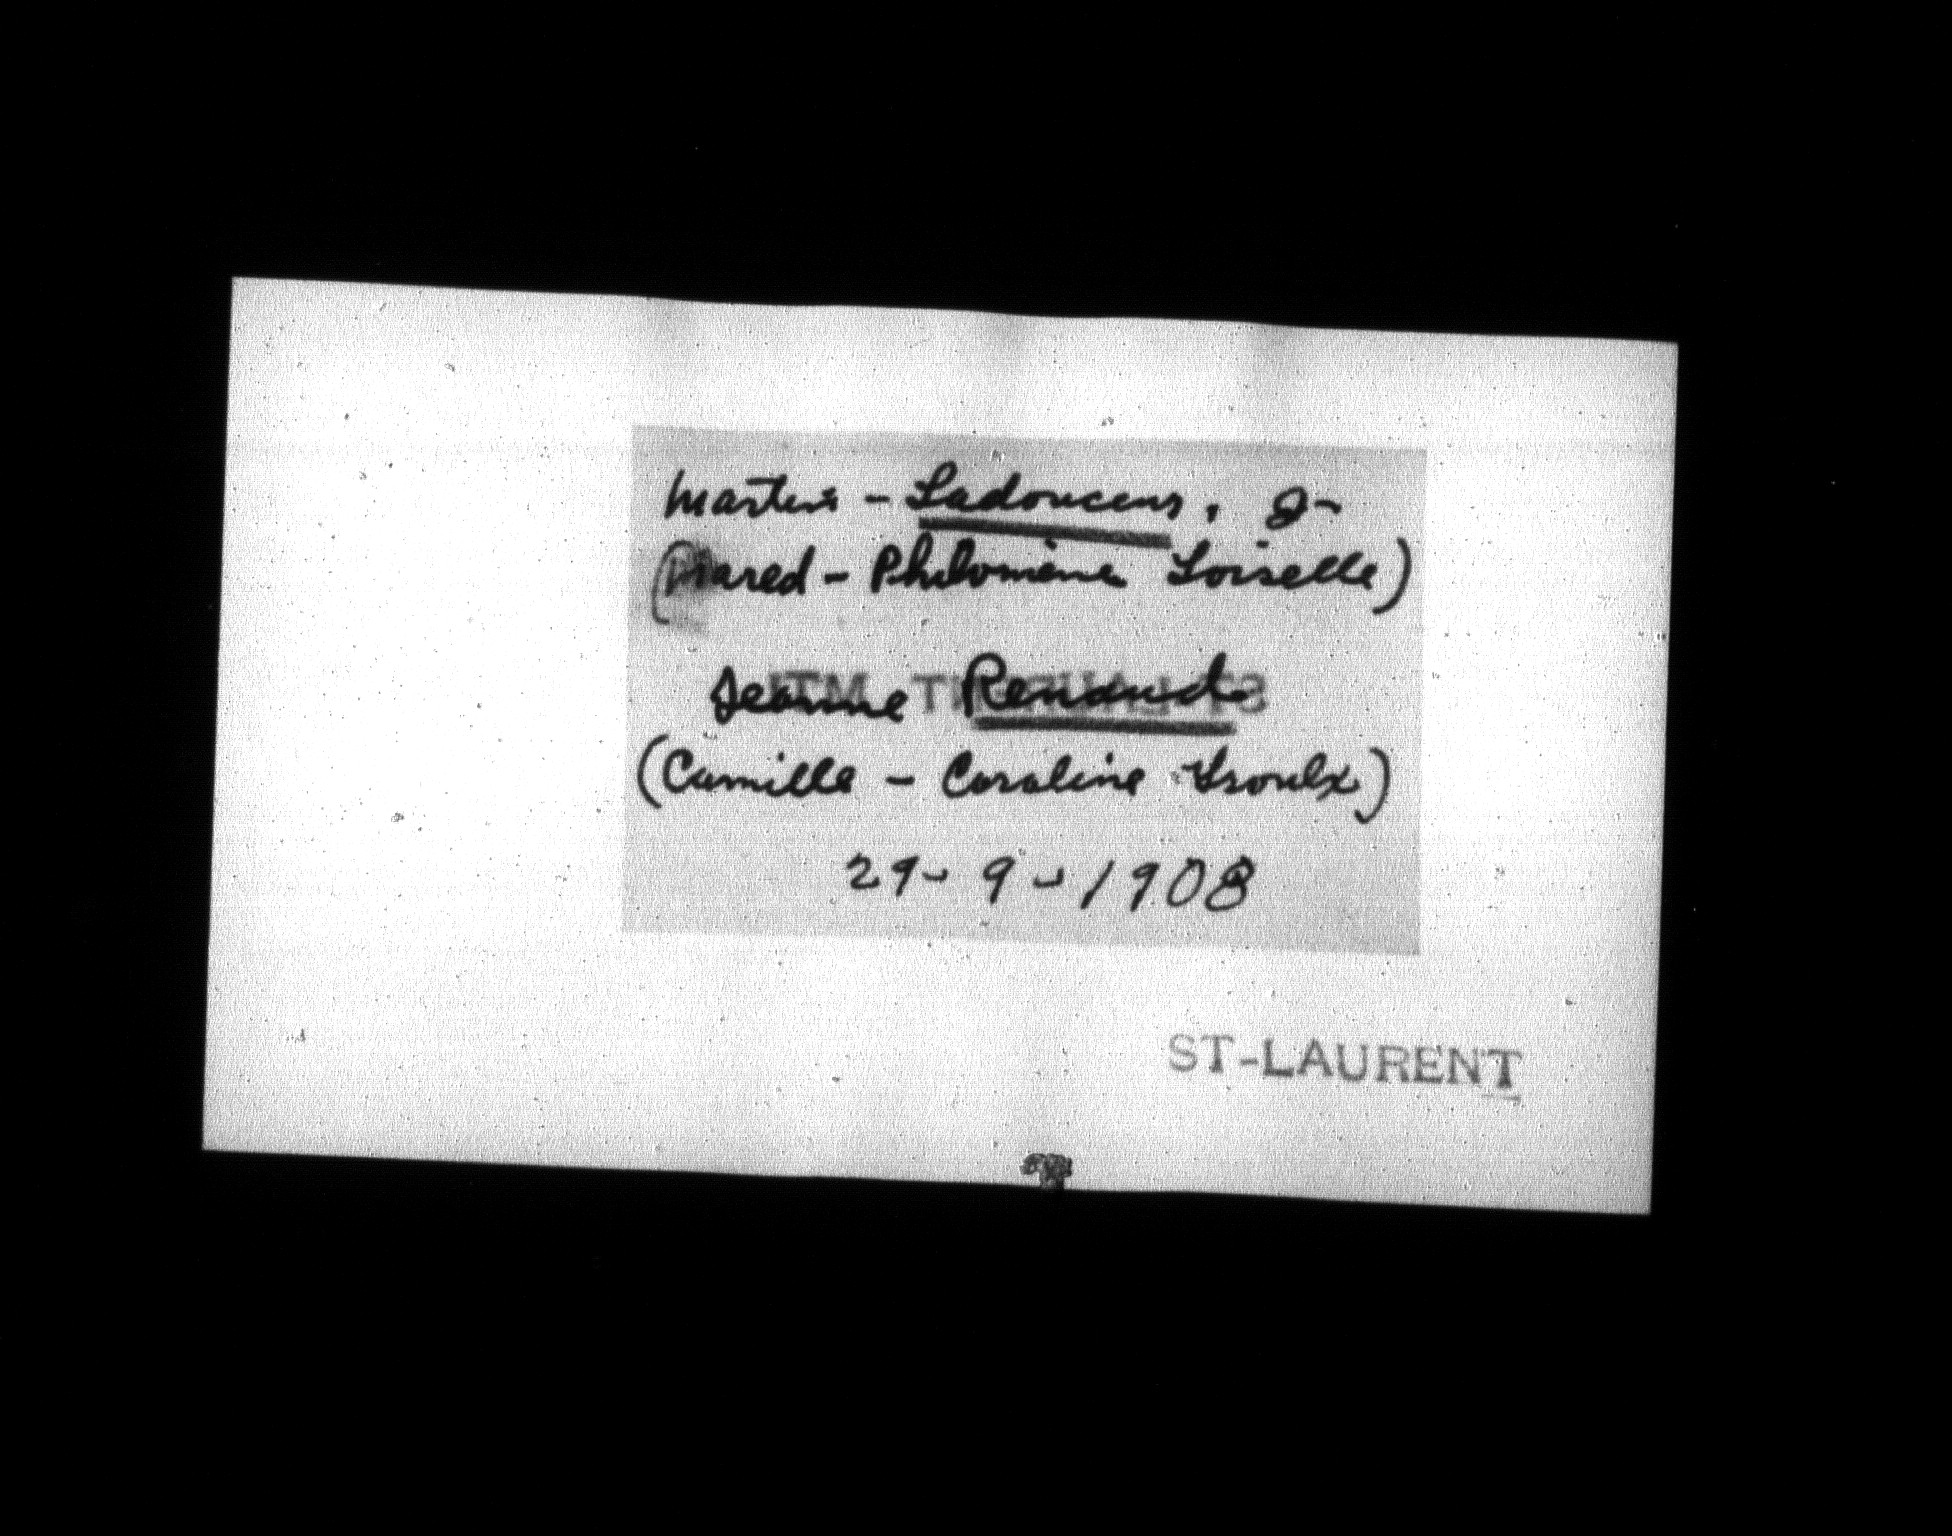 Martin - Ladouceur, J-
(Mared - Philomène Loiselle)
Jeanne Renaud
(Camille - Caroline Groulx)
29-9-1908
ST-LAURENT